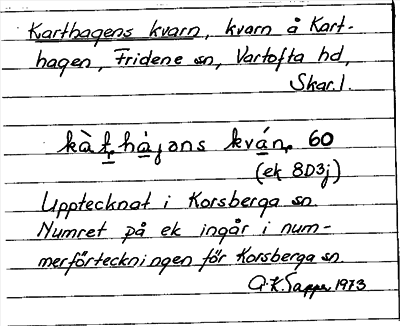 Karthagens kvarn, kvarn å Kart-
hagen, Fridene sn, Vartofta hd,
Skar.l.
kàt̠hàjəns kván̠ 60
(ek 8D3j)
Upptecknat i Korsberga sn.
Numret på ek ingår i num-
merförteckningen för Korsberga sn.
G.K.Sapper 1973